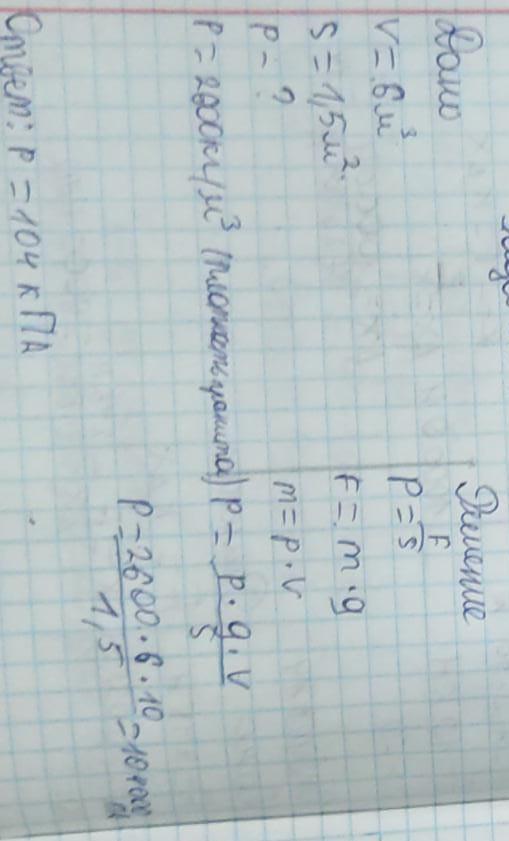 Дано
V = 6 м³
S = 1,5 м².
P - ?
P = 2600 кг/м³ (плотность гранита)
Решение
P = F/S
F = m · g
m = p · V
P = p · g · V / S
P = 2600 · 6 · 10 / 1,5 = 104
Ответ: P = 104 к ПА